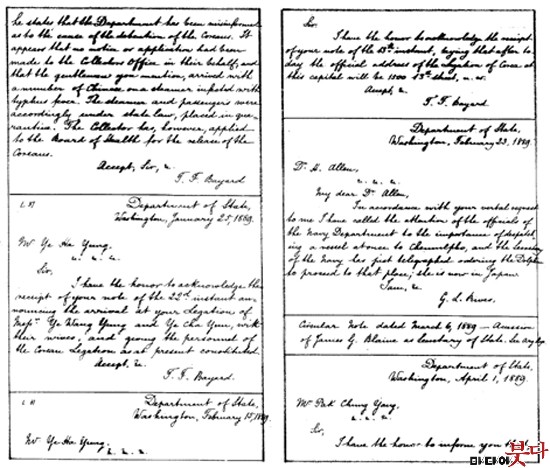 he states that the Department has been misinformed
as to the cause of the detention of the Coreans. It
appears that no notice or application had been
made to the Collectors Office in their behalf, and
that the gentlemen you mention, arrived with
a number of Chinese on a steamer infested with
typhus fever. The steamer and passengers were
accordingly under state law, placed in qua-
rantine. The Collector has, however, applied
to the Board of Health for the release of the
Coreans.
Accept, Sir, &.
T. F. Bayard
Department of State,
Washington, January 25, 1889.
Mr Ye Ha Yung.
&. &. &.
Sir.
I have the honor to acknowledge the
receipt of your note of the 22d instant an-
nouncing the arrival at your Legation of
Messrs Ye Wang Yung and Ye Cha Yun, with
their wives, and giving the personnel of
the Corean Legation as at present constituted.
Accept, &.
T. F. Bayard.
Department of State,
Washington, February 15, 1889.
Mr Ye Ha Yung.
&. &. &.
Sir.
I have the honor to acknowledge the receipt
of your note of the instant, saying that after to
day the official address of the Legation of Corea at
this capital will be 1500 13th street, n. w.
Accept, &.
T. F. Bayard
Department of State,
Washington, February 23, 1889.
Dr. H. Allen,
&. &. &.
My dear Dr. Allen,
In accordance with your verbal request
to me I have called the attention of the officials of
the Navy Department to the importance of despatch-
ing a vessel at once to Chemulpho, and the Secretary
of the Navy has just telegraphed ordering the Dolphin
to proceed to that place; she is now in Japan
I am, &.
G. L. Rives.
Circular Note dated March 6, 1889 — Accession
of James G. Blaine as Secretary of State. See
Department of State,
Washington, April 1, 1889.
Mr Pak Chung Yang.
&. &. &.
Sir,
I have the honor to inform you
미디어 붓다